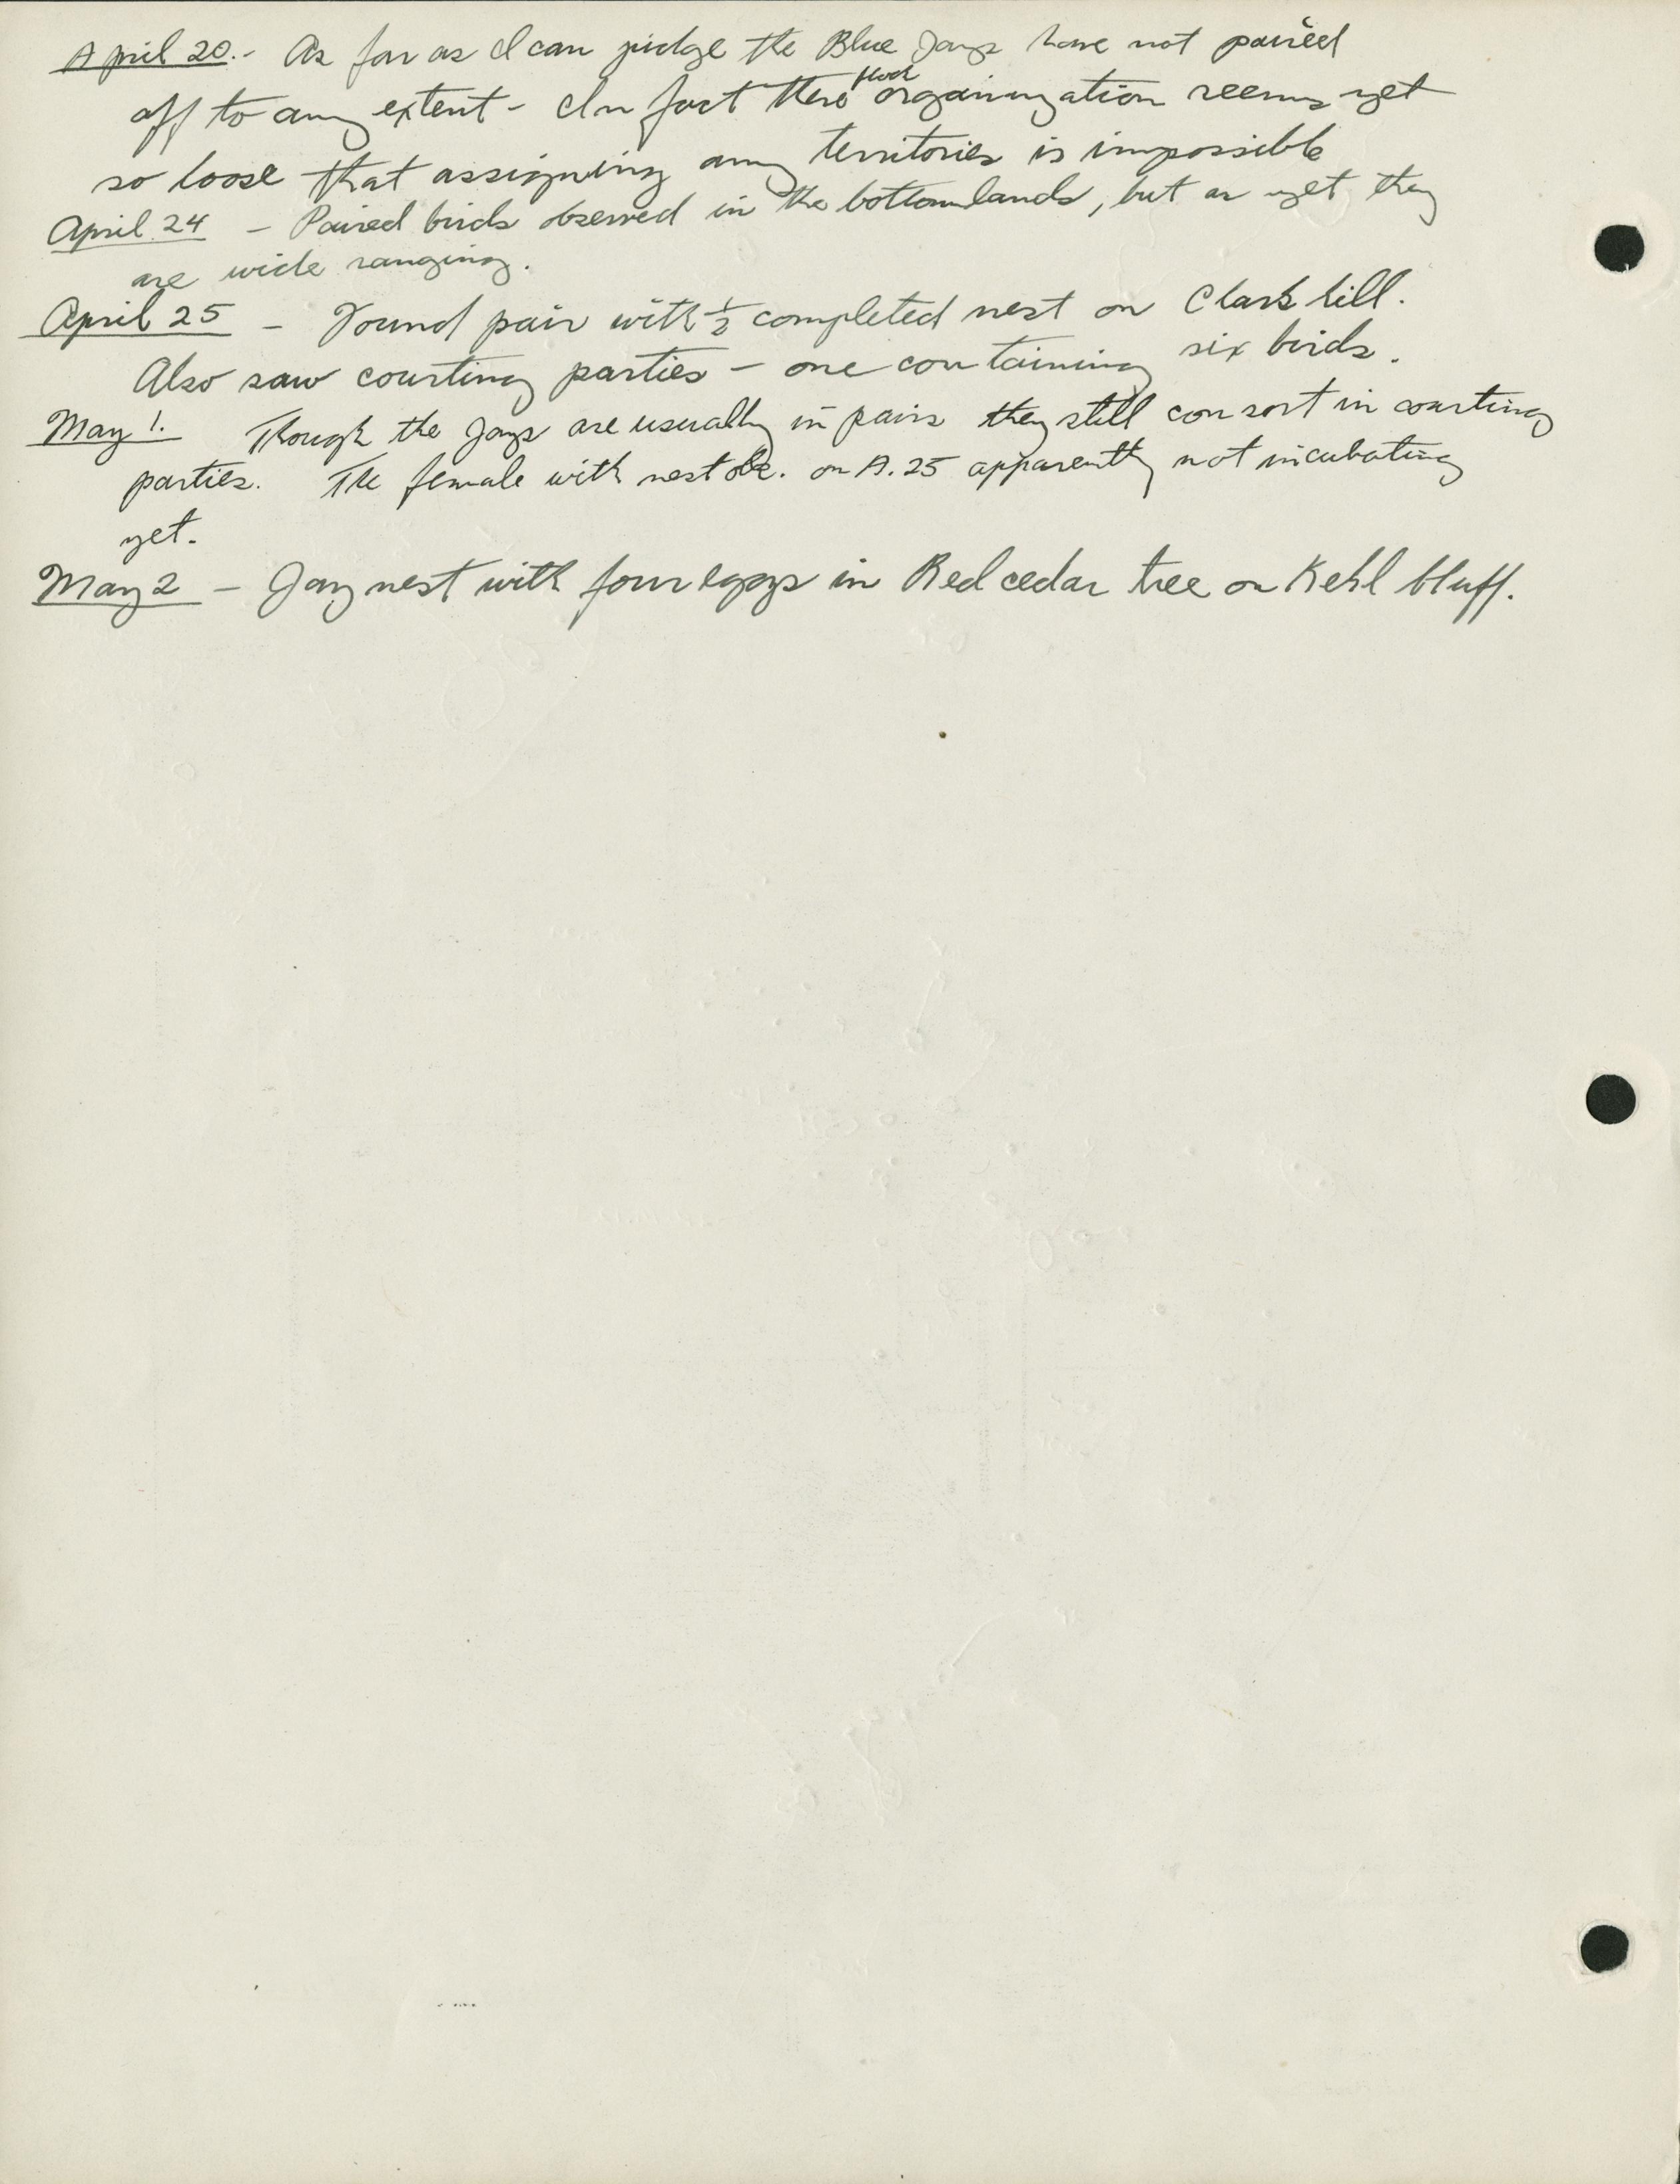 April 20.- As far as I can judge the Blue Jays have not paired
off to any extent - In fact there flock organization seems yet
so loose that assigning any territories is impossible
April 24 - Paired birds observed in the bottomlands, but as yet they
are wide ranging.
April 25 - Found pair with ½ completed nest on Clark hill.
Also saw courting parties - one containing six birds.
May 1. Though the Jays are usually in pairs they still consort in courting
parties. The female with nest obs. on A.25 apparently not incubating
yet.
May 2 - Jay nest with four eggs in Red cedar tree on Kehl bluff.